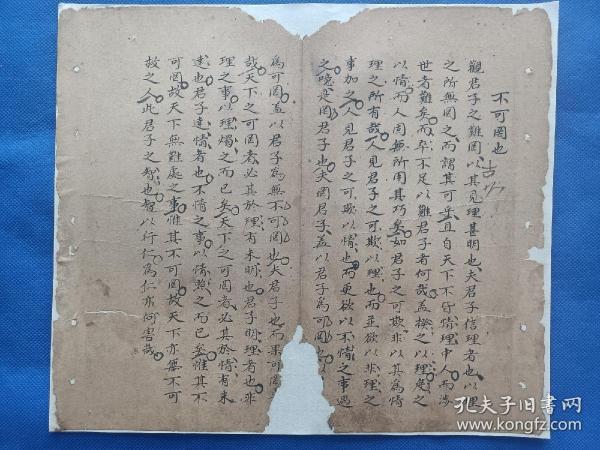 不可罔也
觀君子之難罔以其見理甚明也夫君子信理者也以理
之所無罔之而謂其可乎且自天下不皆情理中人而涉
世者難矣而卒不足以難君子者何哉蓋揆之以理度之
以情而人罔無所用其巧矣如君子之可欺非以其為情
理之所有哉人見君子之可欺以理也而並欲以非理之
事加之人見君子之可欺以情也而更欲以不情之事遇
之噫是罔君子也夫罔君子蓋以君子為可罔也
為可罔蓋以君子為無不可罔也夫君子也而果可罔
哉天下之可罔者必其於理有未明也君子明理者也非
理之事以理燭之而已矣天下之可罔者必其於情有未
達也君子達情者也不情之事以情照之而已矣惟其不
可罔故天下無難處之事惟其不可罔故天下亦無不可
救之人此君子之智也智以行仁為仁亦何害哉
孔夫子旧书网
www.kongfz.com